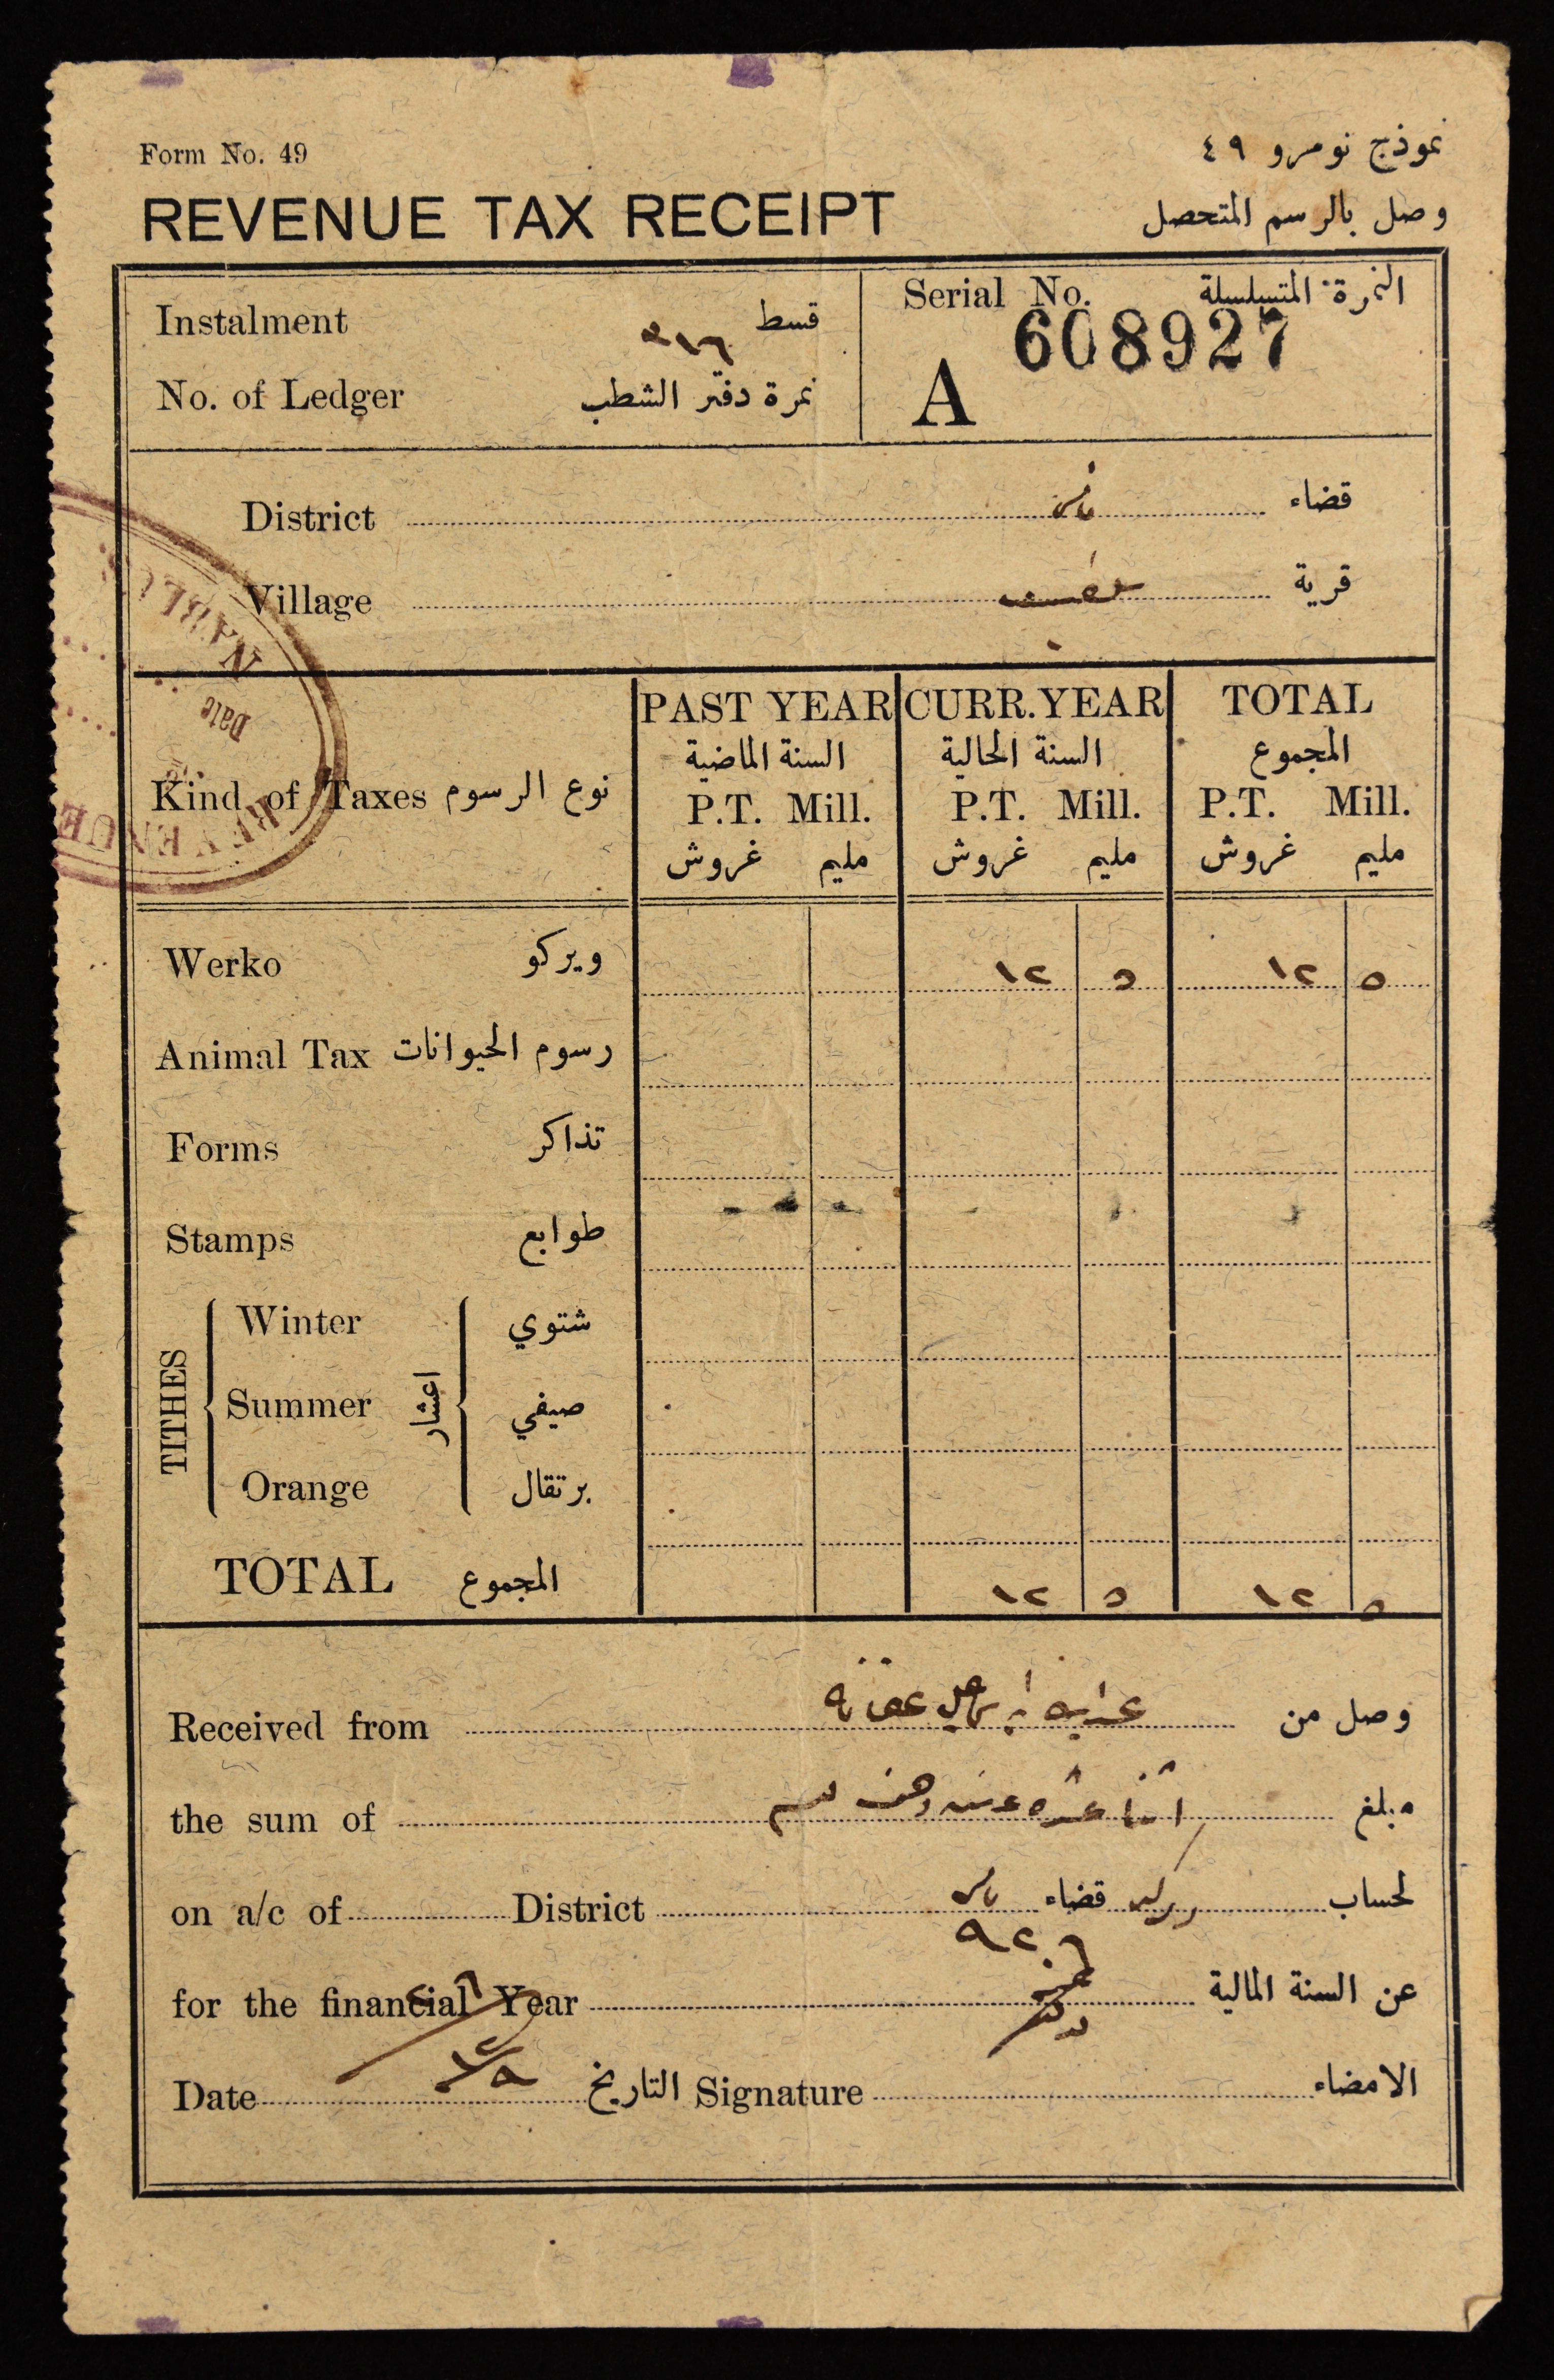 Form No. 49 نموذج نومرو ٤٩
REVENUE TAX RECEIPT وصل بالرسم المتحصل
Instalment قسط
Serial No. النمرة المتسلسلة
608927
٣١٦
No. of Ledger نمرة دفتر الشطب
A
District قضاء
Village قرية
NABLUS
Date
REVENUE
PAST YEAR CURR. YEAR TOTAL
السنة الماضية السنة الحالية المجموع
Kind of Taxes نوع الرسوم
P.T. Mill. P.T. Mill. P.T. Mill.
غروش مليم غروش مليم غروش مليم
Werko ويركو ١٢ ٥ ١٢ ٥
Animal Tax رسوم الحيوانات
Forms تذاكر
Stamps طوابع
TITHES اعشار
Winter شتوي
Summer صيفي
Orange برتقال
TOTAL المجموع ١٢ ٥ ١٢ ٥
Received from وصل من
the sum of مبلغ
on a/c of District قضاء لحساب
٩٢٦
for the financial Year عن السنة المالية
Date التاريخ Signature الامضاء